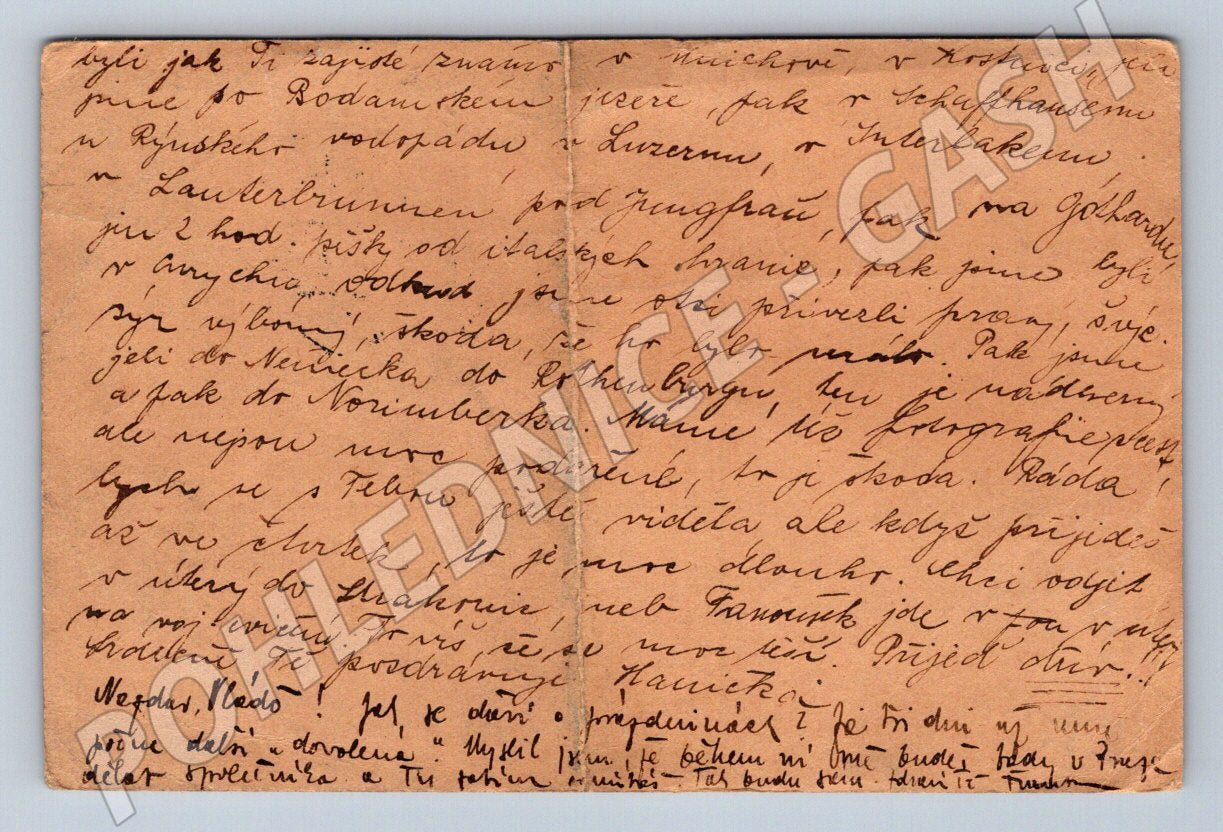 byli jak Ti zajisté známo v Mnichově, v Kostnici, jeli
jsme po Bodamském jezeře, pak v Schaffhausenu
u Rýnského vodopádu, v Luzernu, v Interlakenu
v Lauterbrunnen pod Jungfrau, pak na Gothardu,
jen 2 hod. pěšky od italských hranic, pak jsme byli
v Curychu, odkud jsme si přivezli pravý švýc.
sýr výborný, škoda, že ho bylo málo. Pak jsme
jeli do Německa do Rothenburgu, ten je nádherný
a pak do Norimberka. Máme též fotografie z cest,
ale nejsou moc podařené, to je škoda. Ráda
bych se s Tebou ještě viděla, ale když přijedeš
až ve čtvrtek, to je moc dlouho. Chci odjet
v úterý do Strakonic, neb Fanoušek jde v tou v úterý
na voj. cvičení. To víš, že se moc těší. Přijeď dřív!!
Srdečně Tě pozdravuje Hanička
Nazdar, Vláďo! Jak se daří o prázdninách? Za tři dni už mně
počne další "dovolená". Myslil jsem, že během ní mně budeš tady v Praze
dělat společníka a Tu zatím Tak budu sám. Zdraví Tě
POHLEDNICE - GASH